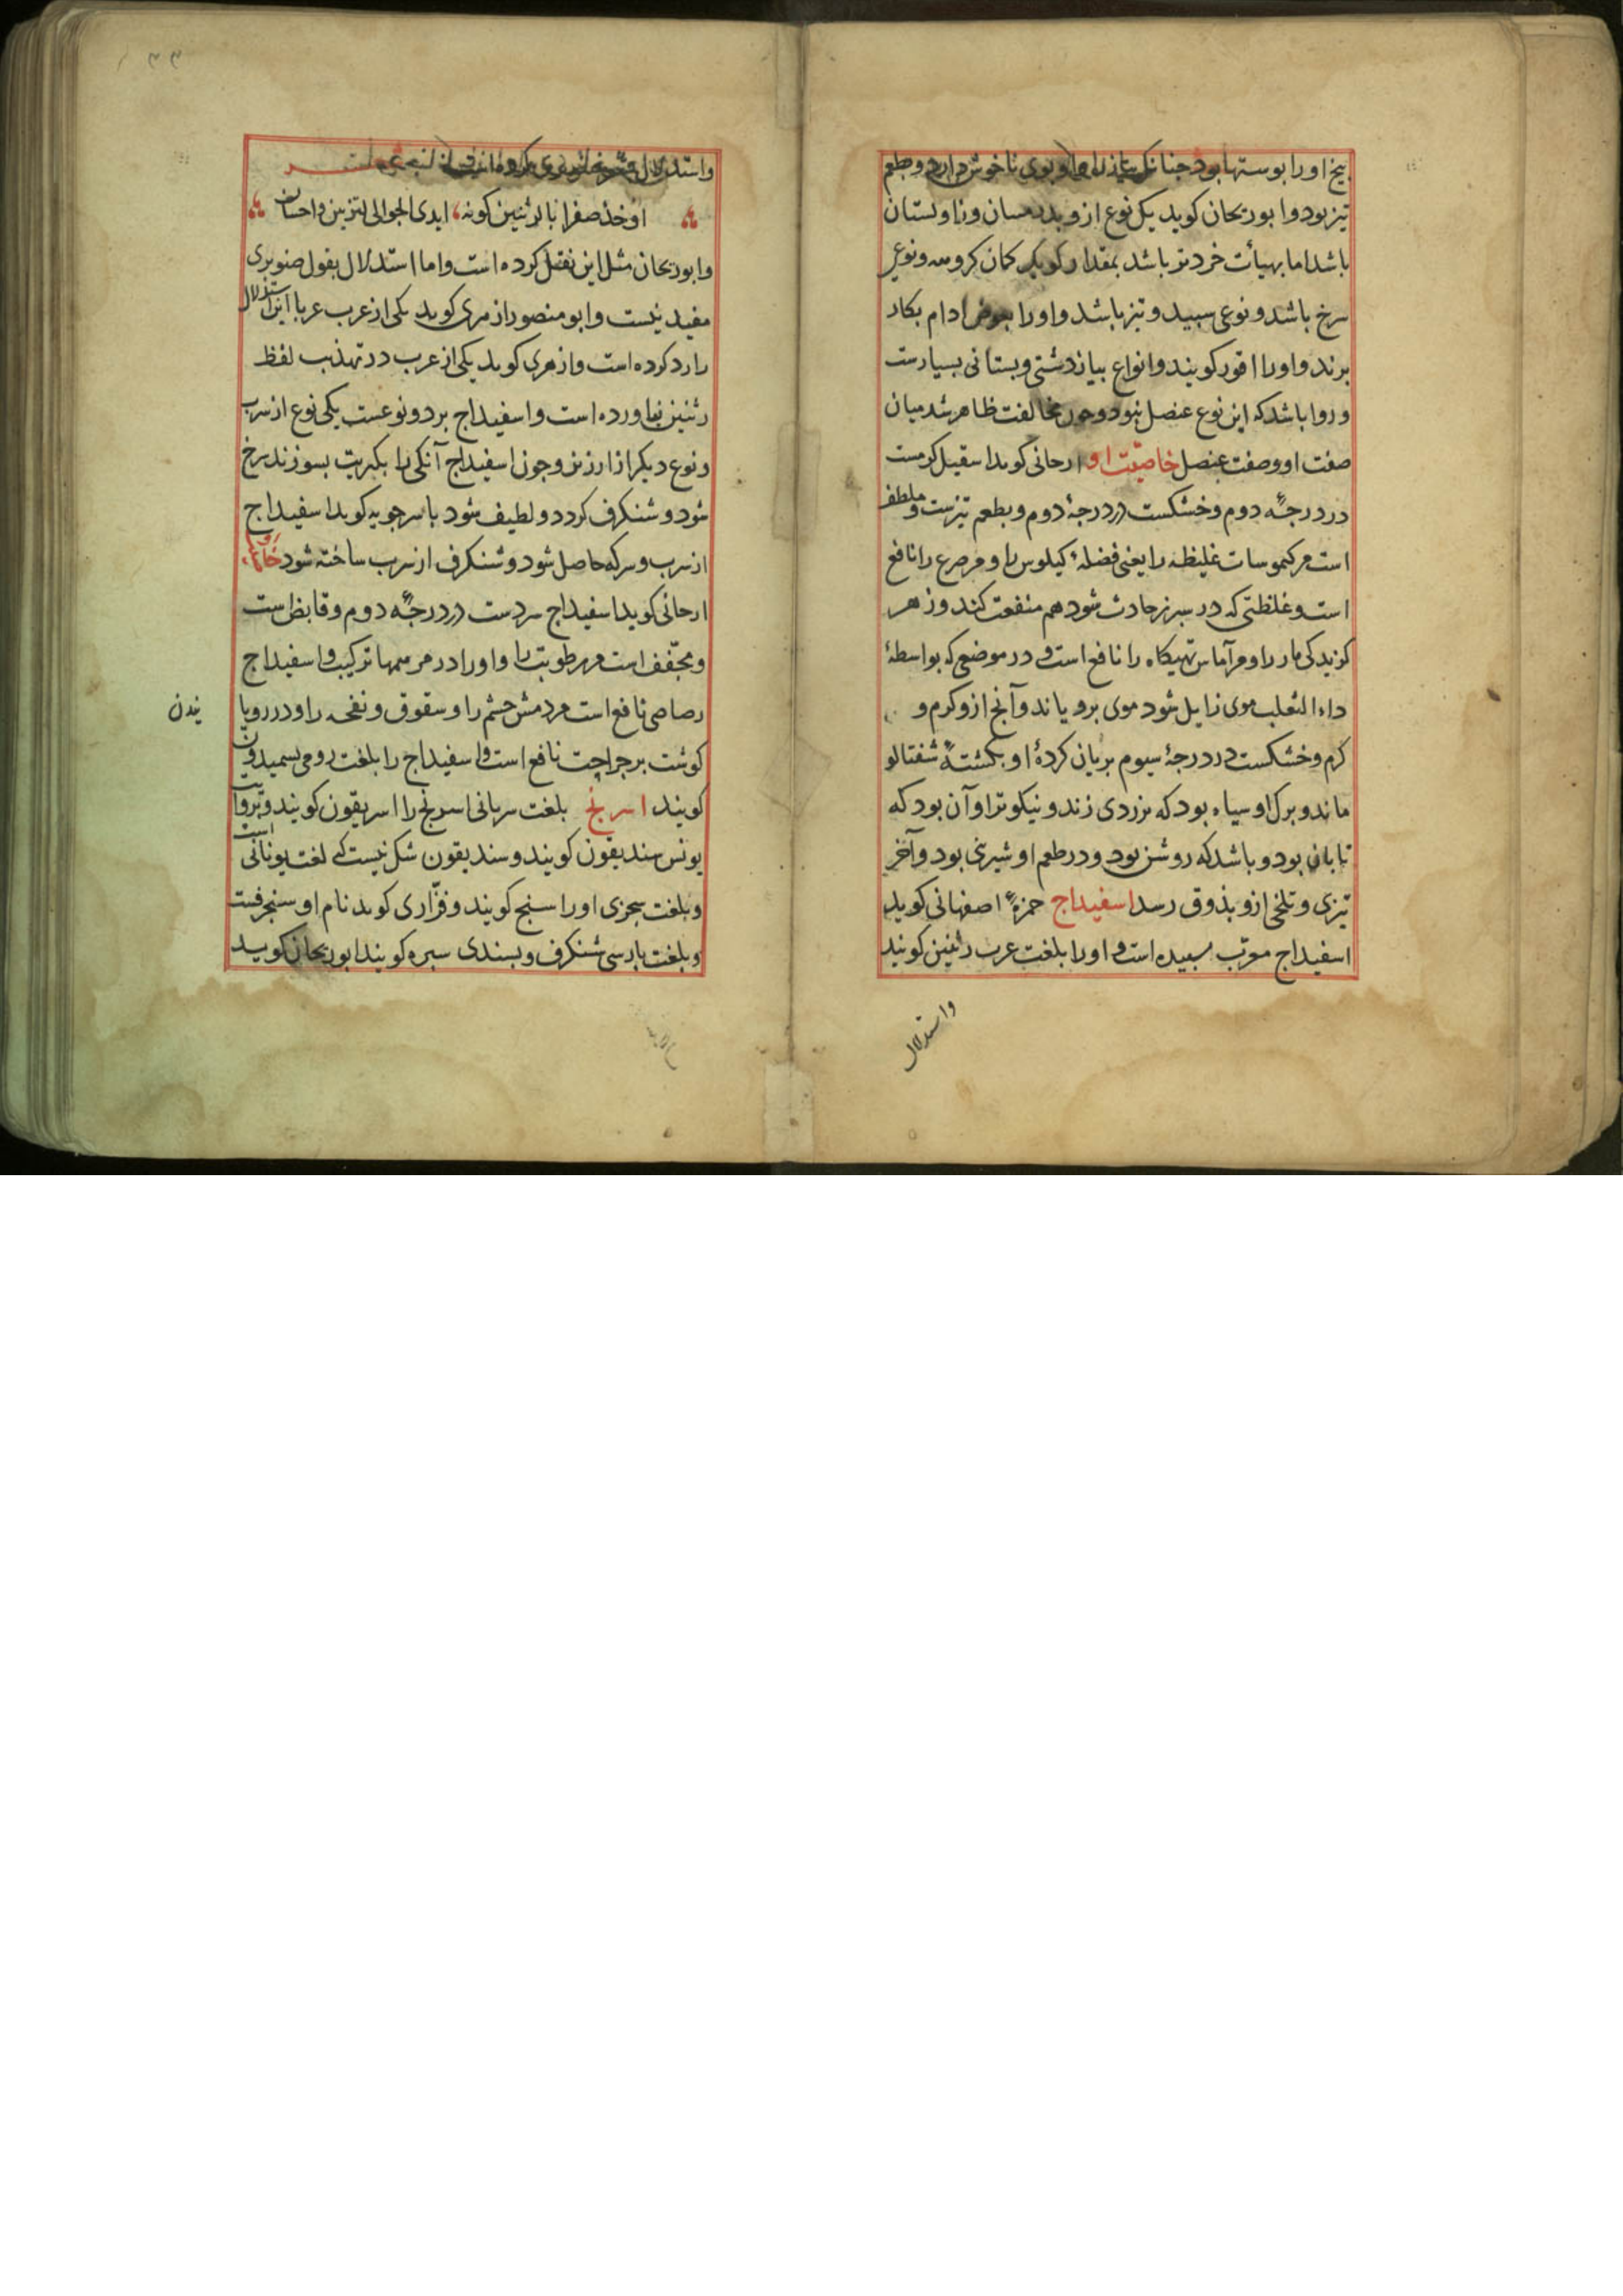 بیخ او را بوستها بود جنانک بیاز را و بوی ناخوش دارد و طعم
تیز بود و ابوریحان کوید یک نوع ازو
باشد اما بهیأت خردتر باشد بمقدار و نوعی
سرخ باشد و نوعی سبید و تیز باشد و او را بعوض ادام بکار
برند و او را اقور کویند و انواع بیاز دشتی و بستانی بسیارست
و روا باشد که این نوع عنصل نبود و جون مخالفت ظاهر شد میان
صفت او و صفت عنصل خاصیّت او ارجانی کوید اسقیل کرمست
در درجۀ دوم و خشکست در درجۀ دوم و بطعم تیزست و ملطف
است مر کیموسات غلیظه را یعنی فضلۀ کیلوس را و مر صرع را نافع
است و غلظتی که در سبرز حادث شود هم منفعت کند و زهر
کزیدکی مار را و مر آماس تهیکاه را نافع است و در موضعی که بواسطۀ
داء الثعلب موی زایل شود موی برویاند و آنج ازو کرم و
کرم و خشکست در درجۀ سیوم بریان کردۀ او بکشتۀ شفتالو
ماند و برک او سیاه بود که بزردی زند و نیکوتر او آن بود که
تابان بود و باشد که روشن بود و در طعم او شیرینی بود و آخر
تیزی و تلخی ازو بذوق رسد اسفیداج حمزۀ اصفهانی کوید
اسفیداج معرّب سبیده است و او را بلغت عرب رثنین کویند
واستدلال
واستدلال
او خذ صفرانا بالرثنین کونه ایدی الجوالی لتزیین و احسان
و ابوریحان مثل این نقل کرده است و اما استدلال بقول صنوبری
مفید نیست و ابو منصور ازهری کوید یکی از عرب عربا این استدلال
را رد کرده است و ازهری کوید یکی از عرب در تهذیب لفظ
رثنین نیاورده است و اسفیداج بر دو نوعست یکی نوع از سرب
و نوع دیکر از ارزیز و جون اسفیداج آنکی را بکبریت بسوزند سرخ
شود و شنکرف کردد و لطیف شود باسرجویه کوید اسفیداج
از سرب و سرکه حاصل شود و شنکرف از سرب ساخته شود
ارجانی کوید اسفیداج سردست در درجۀ دوم و قابض است
و مجفّف است مر رطوبت را و او را در مرهمها ترکیب و اسفیداج
رصاصی نافع است مر دمش جشم را و سقوق و نفخه را و در رویا
نیدن
کوشت بر جراحت نافع است و اسفیداج را بلغت رومی بسمیدون
کویند اسرنج بلغت سریانی اسرنج را اسریقون کویند و بروایت
یونس سندیقون کویند و سندیقون شک نیست که لغت یونانی است
و بلغت سجزی او را سنج کویند و فزّاری کوید نام او سنجرفست
و بلغت بارسی شنکرف و بسندی سبره کویند ابوریحان کوید